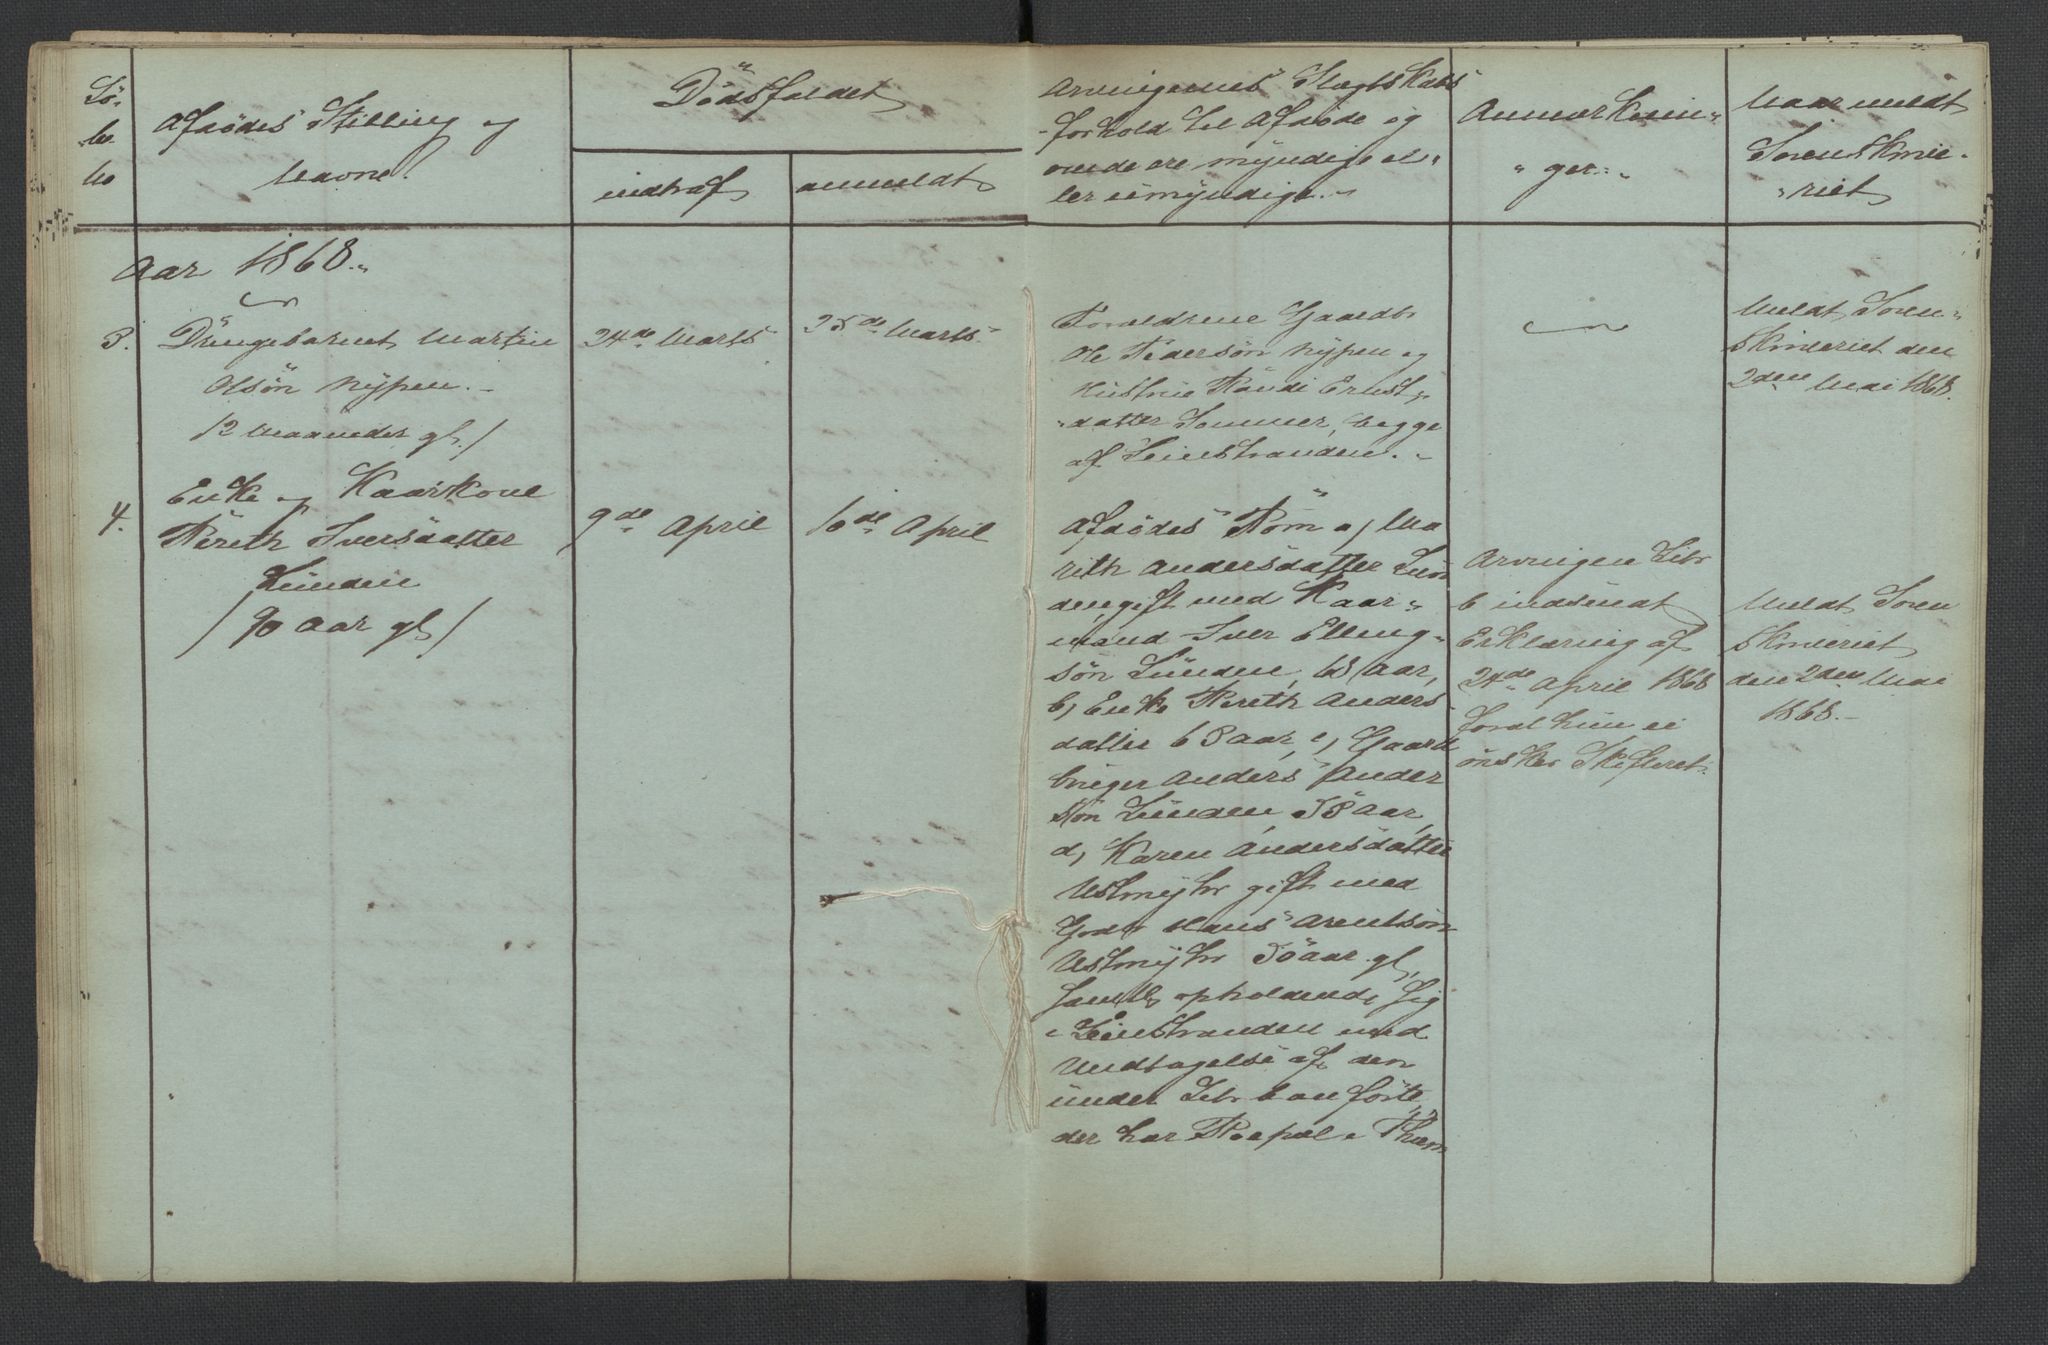 Lö-
be
No
Afdödes Stilling og
Navne.
Dödsfaldet
indtraf
anmeldt
Arvingernes Slægtskabs
forhold til Afdöde og
om de ere myndige el-
ler umyndige.
Anmærknin-
ger.
Naar meldt
Sorenskrive-
riet
Aar 1868.
3.
Drengebarnet Martin
Olsön Nypen.
12 Maaneder gl./
24de Marts
25de Marts
Forældrene Gaardbr
Ole Pedersön Nypen og
Hustrue Randi Ernst-
datter Sommer, begge
af Leinstranden.
Meldt Soren-
skriveriet den
2den Mai 1868.
4.
Enke og Kaarkone
Bereth Iversdatter
Lünden
/90 Aar gl/
9de April
16de April
Afdödes Börn a, Ma
rith Andersdatter Lün
den gift med Kaar-
mand Iver Elling-
sön Lünden, 63 Aar,
b, Enke Bereth Anders
datter 68 aar, c, Gaard
bruger Anders Ander
sön Lünden 58 Aar,
d, Karen Andersdatter
Ustmyhr gift med
Gdbr Hans Arentsön
Ustmyhr 50 aar gl,
samtl. opholdende sig
i Leinstranden med
Undtagelse af den
under Litr b anförte,
der har Bopæl i Thjem
Arvingen Litr
b indsendt
Erklæring af
24de April 1868
hvorat hun ei
önsker Skifteret.
Meldt Soren
skriveriet
den 2den Mai
1868.